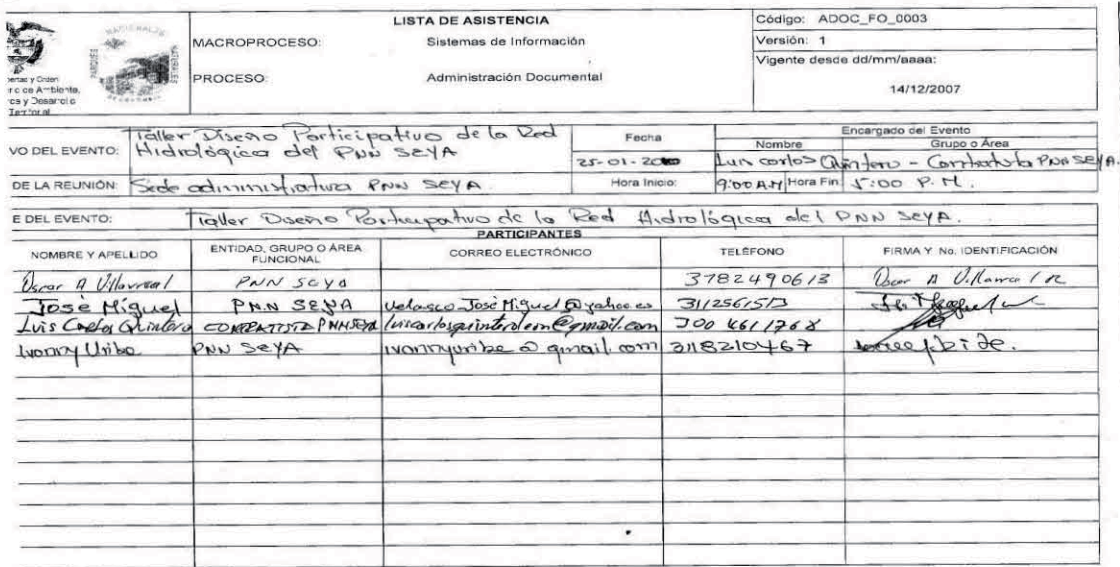 LISTA DE ASISTENCIA
Código: ADOC_FO_0003
MACROPROCESO: Sistemas de Información
Versión: 1
PROCESO: Administración Documental
Vigente desde dd/mm/aaaa:
14/12/2007
PARQUES NACIONALES NATURALES
VO DEL EVENTO: Taller Diseño Participativo de la Red
Hidrológica del PNN SEYA
Fecha
25-01-20
Encargado del Evento
Nombre Grupo o Área
Luis Carlos Quintero - Contratista PNN SEYA.
DE LA REUNIÓN: Sede administrativa PNN SEYA.
Hora Inicio: 9:00 A.M Hora Fin 5:00 P.M.
E DEL EVENTO: Taller Diseño Participativo de la Red Hidrológica del PNN SEYA.
PARTICIPANTES
NOMBRE Y APELLIDO ENTIDAD, GRUPO O ÁREA FUNCIONAL CORREO ELECTRÓNICO TELÉFONO FIRMA Y No. IDENTIFICACIÓN
Oscar A Villarreal PNN SEYA 3782490613 Oscar A Villarreal R
José Miguel PNN SEYA velascoJoséMiguel@yahoo.es 3112561513
Luis Carlos Quintero CONTRATISTA PNN SEYA luiscarlosquinteroleon@gmail.com 300 4611768
Ivonny Uribe PNN SEYA ivonnyuribe@gmail.com 3118210467